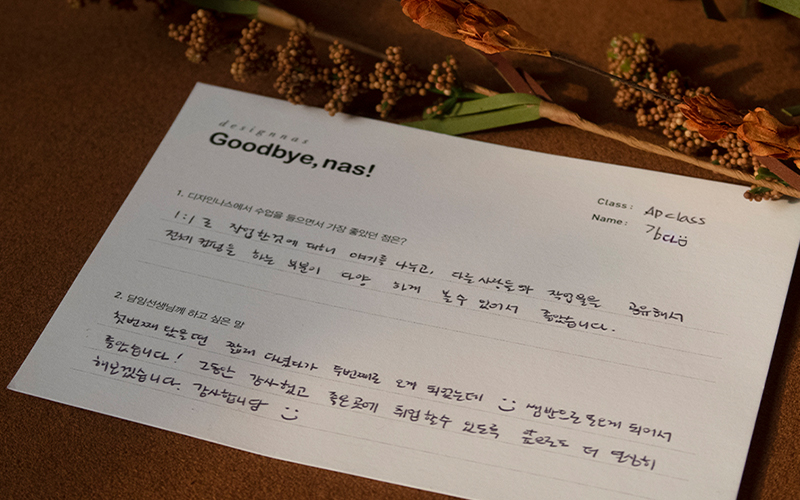 designnas
Goodbye, nas!
Class : AD class
Name :
1. 디자인나스에서 수업을 들으면서 가장 좋았던 점은?
1:1로 작업한것에 대해서 얘기를 나누고, 다른 사람들과 작업물을 공유해서
전체 컨펌을 하는 부분이 다양하게 볼 수 있어서 좋았습니다.
2. 담임선생님께 하고 싶은 말
첫번째 왔을땐 짧게 다녔다가 두번째로 오게 되었는데 쌤반으로 오게 되어서
좋았습니다! 그동안 감사했고 좋은곳에 취업할수 있도록 앞으로도 더 열심히
해보겠습니다. 감사합니다